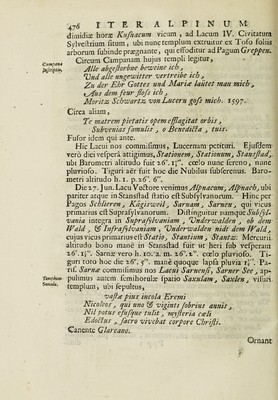 476 ITER ALPINUM
dimidiæ horæ Kusnacum vicum, ad Lacum IV. Civitatum
Sylvestrium situm, ubi nunc templum extruitur ex Tofo soliis
arborum subinde prægnante, qui effoditur ad Pagum Greppen.
Circum Campanam hujus templi legitur,
Campana
Inscriptio.
Alle abgestorbne beweine ich,
Und alle ungewitter vertreibe ich,
Zu der Ehr Gottes und Mariæ lautet man mich,
Aus dem feur floss ich,
Moritz Schwartz von Lucern goss mich. 1597.
Circa aliam,
Te matrem pietatis opem efflagitat orbis,
Subvenias famulis, o Benedicta, tuis.
Fusor idem qui ante.
Hic Lacui nos commisimus, Lucernam petituri. Ejusdem
verò diei vesperâ attigimus, Stationem, Stationum, Stansstad,
ubi Barometri altitudo fuit 26". 1‴. cœlo nunc sereno, nunc
pluvioso. Tiguri aër fuit hoc die Nubilus subserenus. Baro-
metri altitudo h. 1. p. 26". 6‴.
Die 27. Jun. Lacu Vectore venimus Alpnacum, Alpnach, ubi
pariter atque in Stansstad statio est Subsylvanorum. Hinc per
Pagos Schlieren, Kägiswald, Sarnam, Sarnen, qui vicus
primarius est Suprasylvanorum. Distinguitur namque Subsyl-
vania integra in Suprasylvaniam, Underwalden, ob dem
Wald, & Infrasylvaniam, Underwalden nidt dem Wald,
cujus vicus primarius est Statio, Stantium, Stantz. Mercurii
altitudo bono manè in Stansstad fuit ut heri sub vesperam
26". 1‴. Sarnæ vero h. 10. a. m. 26". 2‴. cœlo pluvioso. Ti-
guri toto hoc die 26". 5‴. manè quoque lapsa pluvia 1‴. Pa-
rùm Sarnâ commisimus nos Lacui Sarnensi, Sarner See, ap-
pulimus autem semihorulæ spatio Saxulam, Saxlen, visuri
templum, ubi sepultus,
Tumulus
vastæ pius incola Eremi
Nicoleos, qui uno & viginti sobrius annis,
Nil potus esusque tulit, mysteria cœli
Edoctus, sacro vivebat corpore Christi.
Canente Glareano.
Ornant